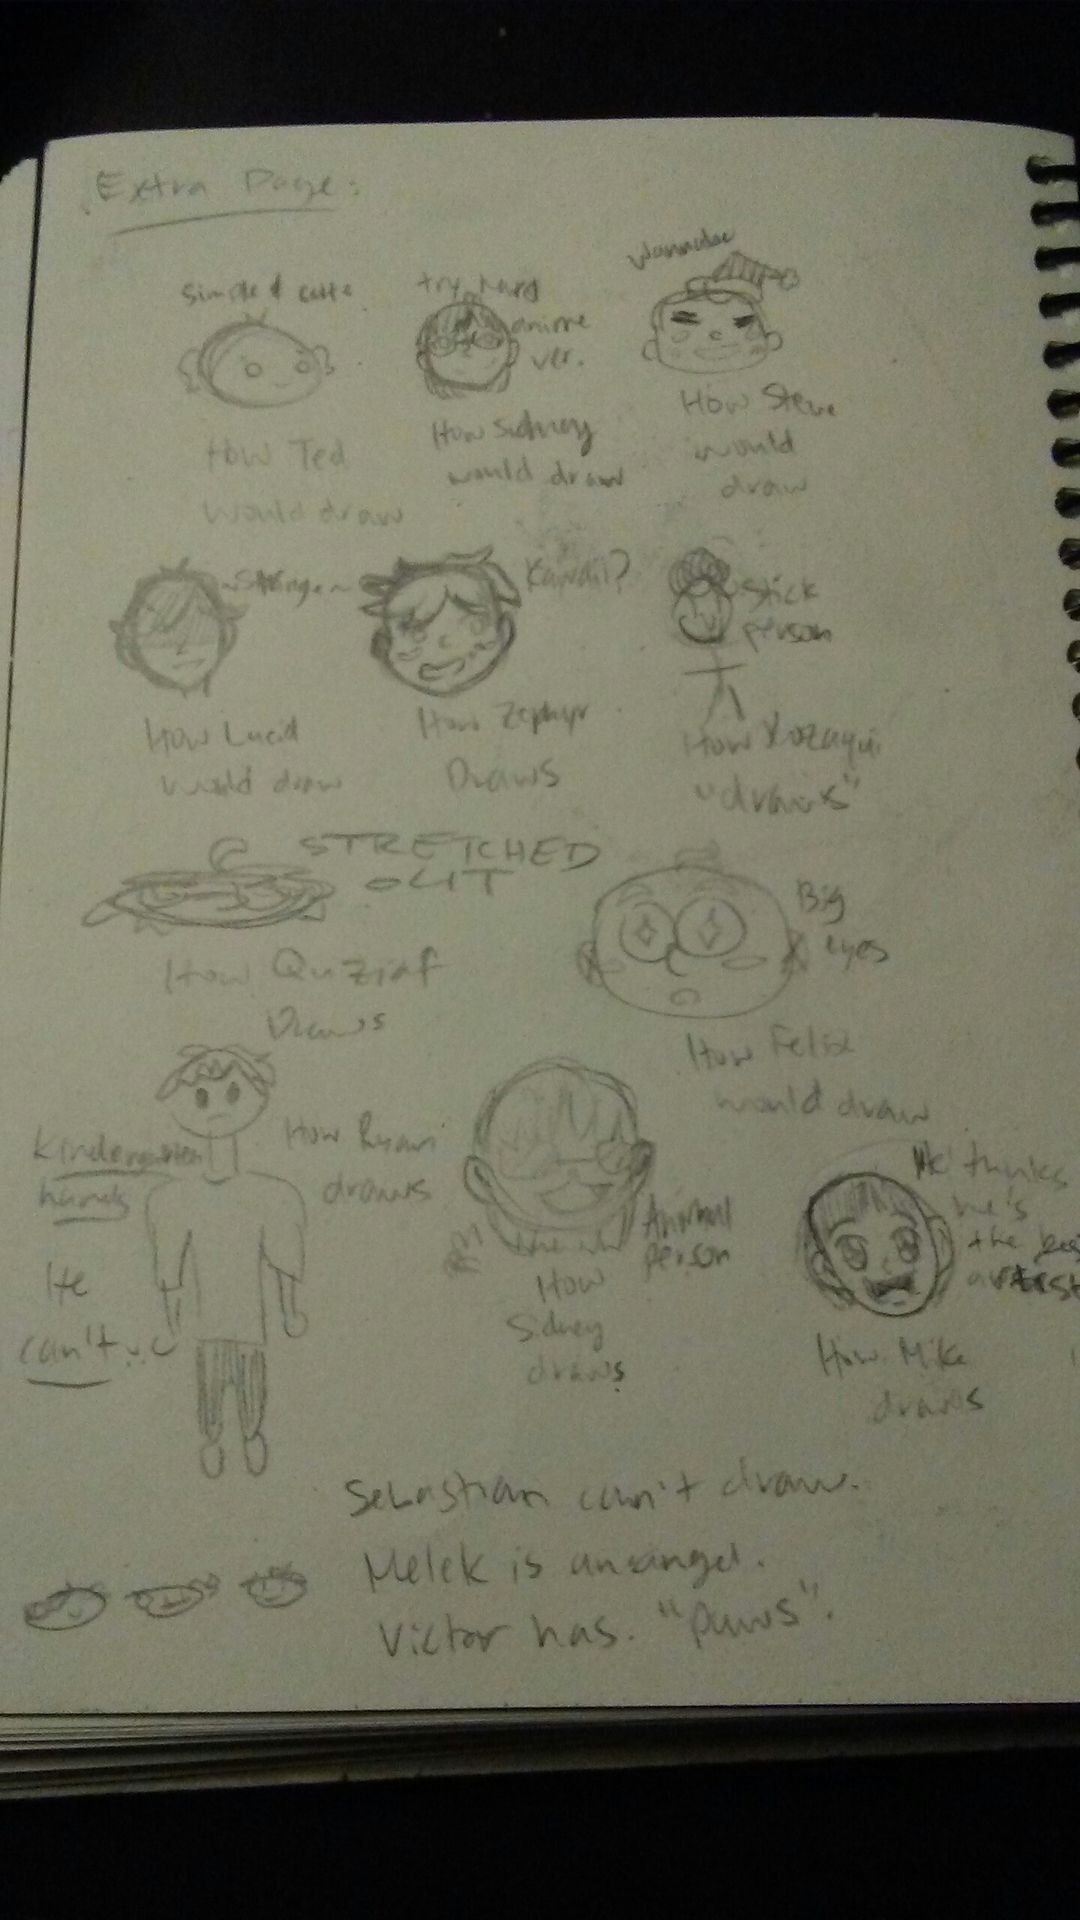 Extra Page:
simple & cute
How Ted
would draw
try hard
anime
ver.
How Sidney
would draw
wannabe
How Steve
would
draw
~Strange~
How Lucid
would draw
Kawaii?
How Zephyr
Draws
stick
person
How
"draws"
STRETCHED
OUT
How Quziaf
Draws
Big
eyes
How Felix
would draw
Kindergarten
hands
He
can't
How Ryan
draws
Animal
person
How
Sidney
draws
He thinks
he's
the best
artist
How Mike
draws
Sebastian can't draw.
Melek is an angel.
Victor has. "paws".